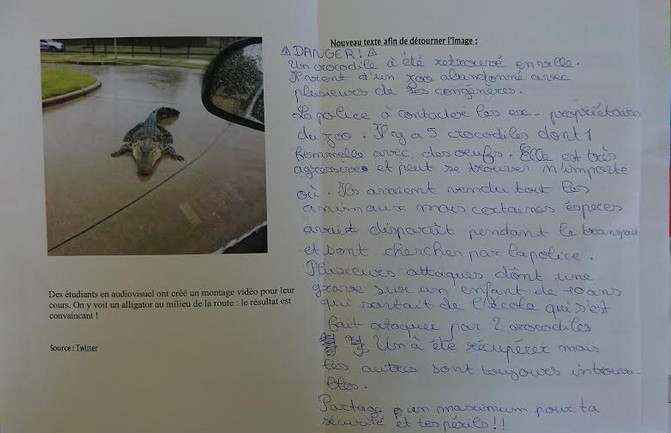 Des étudiants en audiovisuel ont créé un montage vidéo pour leur
cours. On y voit un alligator au milieu de la route : le résultat est
convaincant !
Source : Twitter
Nouveau texte afin de détourner l'image :
⚠DANGER!⚠
Un crocodile à été retrouvé en ville.
Il vient d'un zoo abandonné avec
plusieurs de ses congénères.
La police à contacter les ex-propriétaires
du zoo. Il y a 5 crocodiles dont 1
femmelle avec des oeufs. Elle est très
agressive et peut se trouver n'importe
où. Ils avaient vendu tout les
animaux mais certaines éspèces
avait disparût pendant le transport
et sont chercher par la police.
Plusieurs attaques dont une
grosse sur un enfant de 10 ans
qui sortait de l'école qui s'est
fait attaquer par 2 crocodiles
Un à été récupérer mais
les autres sont toujours introuva-
bles.
Partage un maximum pour ta
sécurité et tes périls!!